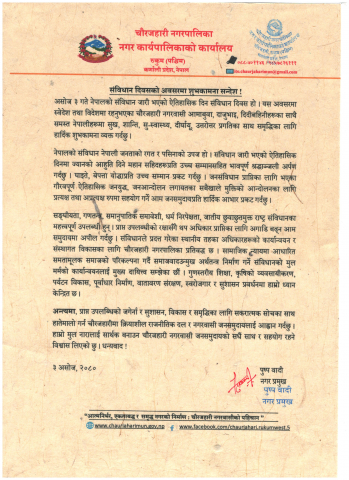 चौरजहारी नगरपालिका
नगर कार्यपालिकाको कार्यालय
रुकुम (पश्चिम)
कर्णाली प्रदेश, नेपाल
संविधान दिवसको अवसरमा शुभकामना सन्देश !
असोज ३ गते नेपालको संविधान जारी भएको ऐतिहासिक दिन संविधान दिवस हो । यस अवसरमा
स्वदेश तथा विदेशमा रहनुभएका चौरजहारी नगरवासी आमाबुवा, दाजुभाइ, दिदीबहिनीहरूका साथै
समस्त नेपालीहरूमा सुख, शान्ति, सु-स्वास्थ्य, दीर्घायु, उत्तरोत्तर प्रगतिका साथ समृद्धिका लागि
हार्दिक शुभकामना व्यक्त गर्दछु ।
नेपालको संविधान नेपाली जनताको रगत र पसिनाको उपज हो । संविधान जारी भएको ऐतिहासिक
दिनमा ज्यानको आहुति दिने महान सहिदहरुप्रति उच्च सम्मानसहित भावपूर्ण श्रद्धाञ्जली अर्पण
गर्दछु । घाइते, बेपत्ता योद्धाप्रति उच्च सम्मान प्रकट गर्दछु । जनसंविधान प्राप्तिका लागि भएका
गौरवपूर्ण ऐतिहासिक जनयुद्ध, जनआन्दोलन लगायतका सबैखाले मुक्तिको आन्दोलनका लागि
प्रत्यक्ष तथा अप्रत्यक्ष रुपमा सहयोग गर्ने आम जनसमुदायप्रति हार्दिक आभार प्रकट गर्दछु ।
सङ्घीयता, गणतन्त्र, समानुपातिक समावेशी, धर्म निरपेक्षता, जातीय छुवाछुतमुक्त राष्ट्र संविधानका
महत्वपूर्ण उपलब्धी हुन् । प्राप्त उपलब्धीको रक्षासँगै थप अधिकार प्राप्तिका लागि अगाडि बढ्न आम
समुदायमा अपील गर्दछु । संविधानले प्रदत्त गरेका स्थानीय तहका अधिकारहरुको कार्यान्वयन र
संस्थागत विकासका लागि चौरजहारी नगरपालिका प्रतिबद्ध छ । सामाजिक न्यायमा आधारित
समतामूलक समाजको परिकल्पना गर्दै समाजवादउन्मुख अर्थतन्त्र निर्माण गर्ने संविधानको मूल
मर्मको कार्यान्वयनलाई मुख्य दायित्व सम्झेका छौं । गुणस्तरीय शिक्षा, कृषिको व्यवसायीकरण,
पर्यटन विकास, पूर्वाधार निर्माण, वातावरण संरक्षण, स्वरोजगार र सुशासन प्रबर्धनमा हाम्रो ध्यान
केन्द्रित छ ।
अन्त्यमा, प्राप्त उपलब्धिको जगेर्ना र सुशासन, विकास र समृद्धिका लागि सकारात्मक सोचका साथ
हातेमालो गर्न चौरजहारीमा क्रियाशील राजनीतिक दल र नगरवासी जनसमुदायलाई आह्वान गर्दछु ।
हाम्रो मूल नारालाई सार्थक बनाउन चौरजहारी नगरवासी जनसमुदायको सधैं साथ र सहयोग रहने
विश्वास लिएको छु । धन्यवाद !
३ असोज, २०८०
पुष्प वादी
नगर प्रमुख
पुष्प वादी
नगर प्रमुख
"आत्मनिर्भर, एकताबद्ध र समृद्ध नगरको निर्माण : चौरजहारी नगरबासीको पहिचान"
www.chaurjaharimun.gov.np
www.facebook.com/chaurjahari.rukumwest.5